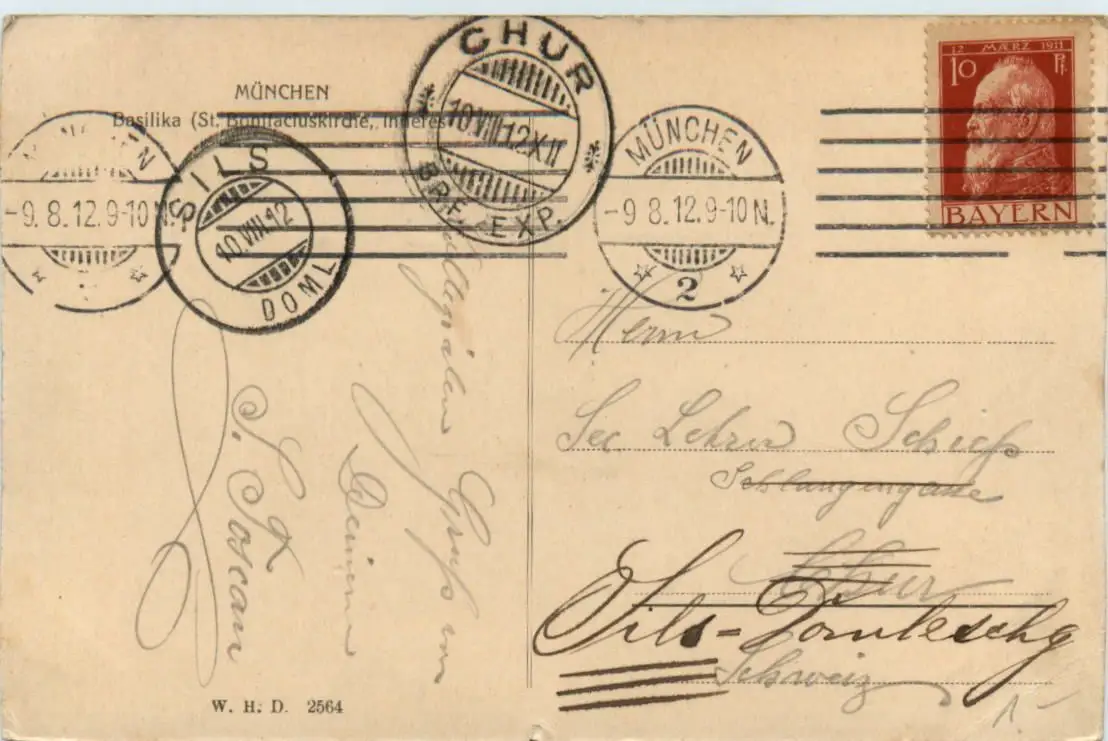 MÜNCHEN
Basilika (St. Bonifaciuskirche, Inneres
MÜNCHEN
-9.8.12.9-10 N.
SILS
10 VIII.12
DOML
CHUR
10 VIII.12.XII
BRF. EXP.
MÜNCHEN
-9 8.12.9-10 N.
2
12 MÆRZ 1911
10 Pf.
BAYERN
Kollegialen Gruss von
Deinem
J. Toscan
Herrn
Sec Lehrer Schiess
Schlangengasse
Chur
Sils-Domleschg
Schweiz
W. H. D. 2564